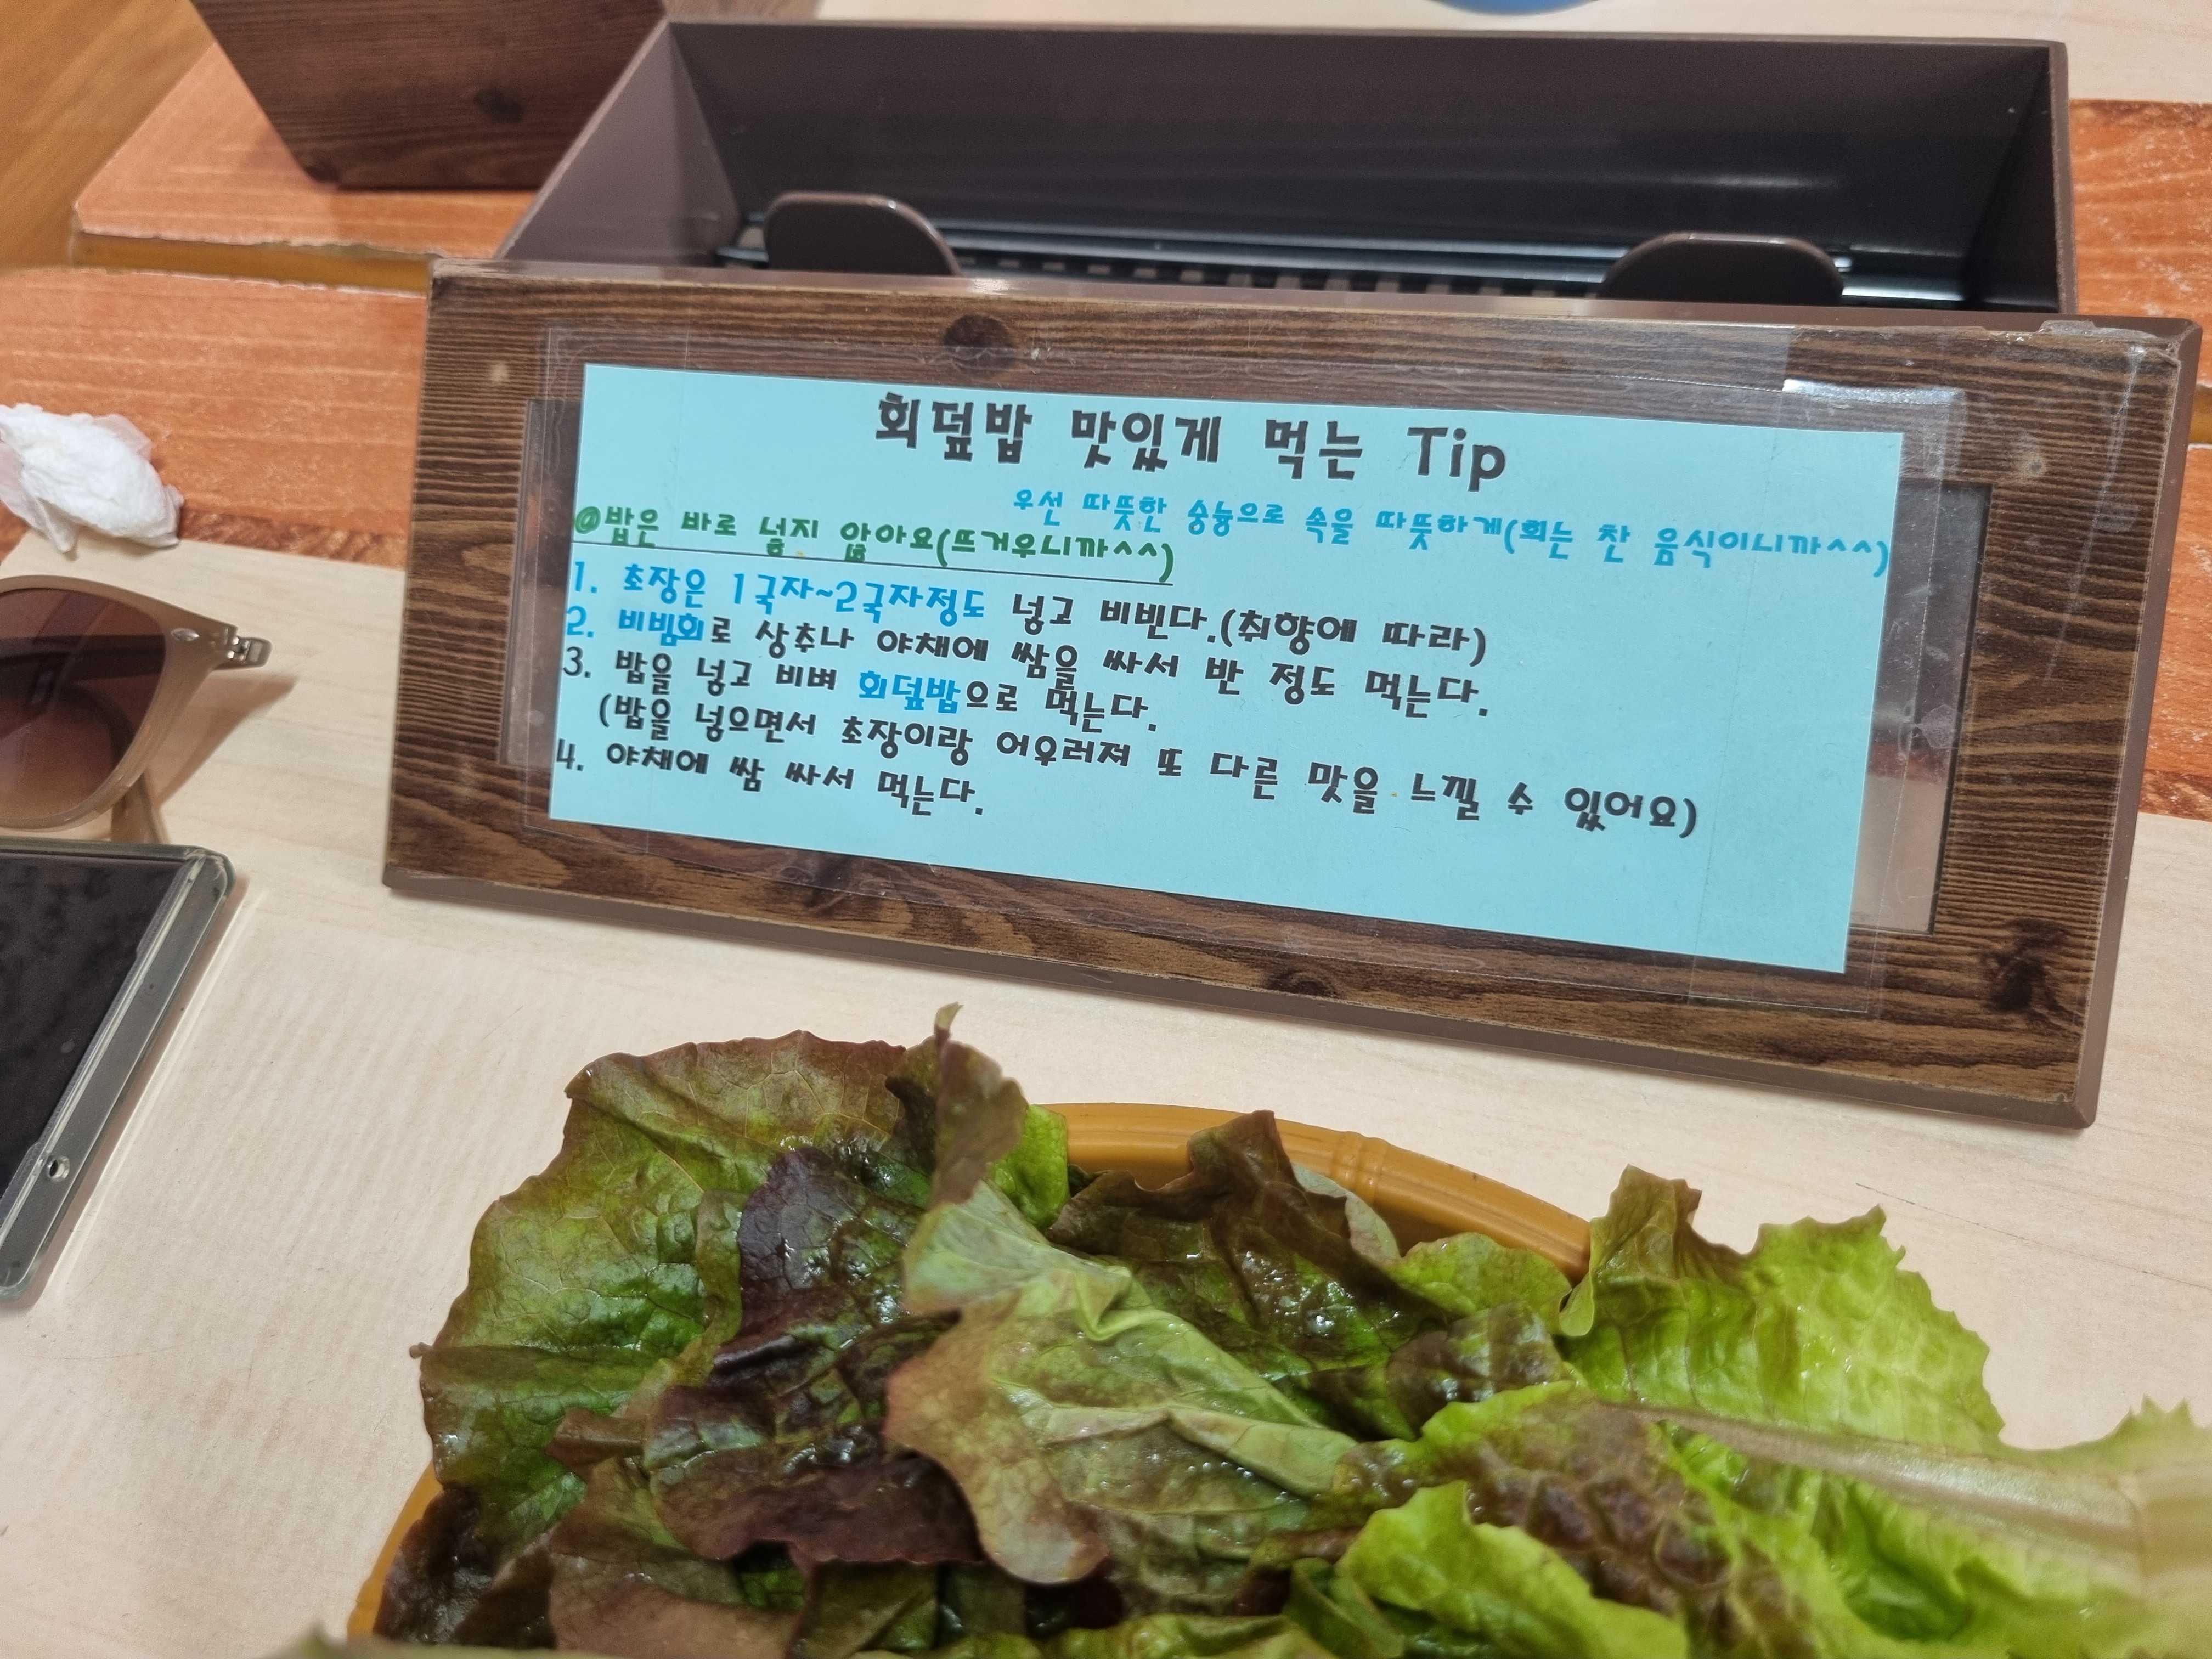 회덮밥 맛있게 먹는 Tip
우선 따뜻한 숭늉으로 속을 따뜻하게(회는 찬 음식이니까^^)
@밥은 바로 넣지 않아요(뜨거우니까^^)
1. 초장은 1국자~2국자정도 넣고 비빈다.(취향에 따라)
2. 비빔회로 상추나 야채에 쌈을 싸서 반 정도 먹는다.
3. 밥을 넣고 비벼 회덮밥으로 먹는다.
(밥을 넣으면서 초장이랑 어우러져 또 다른 맛을 느낄 수 있어요)
4. 야채에 쌈 싸서 먹는다.